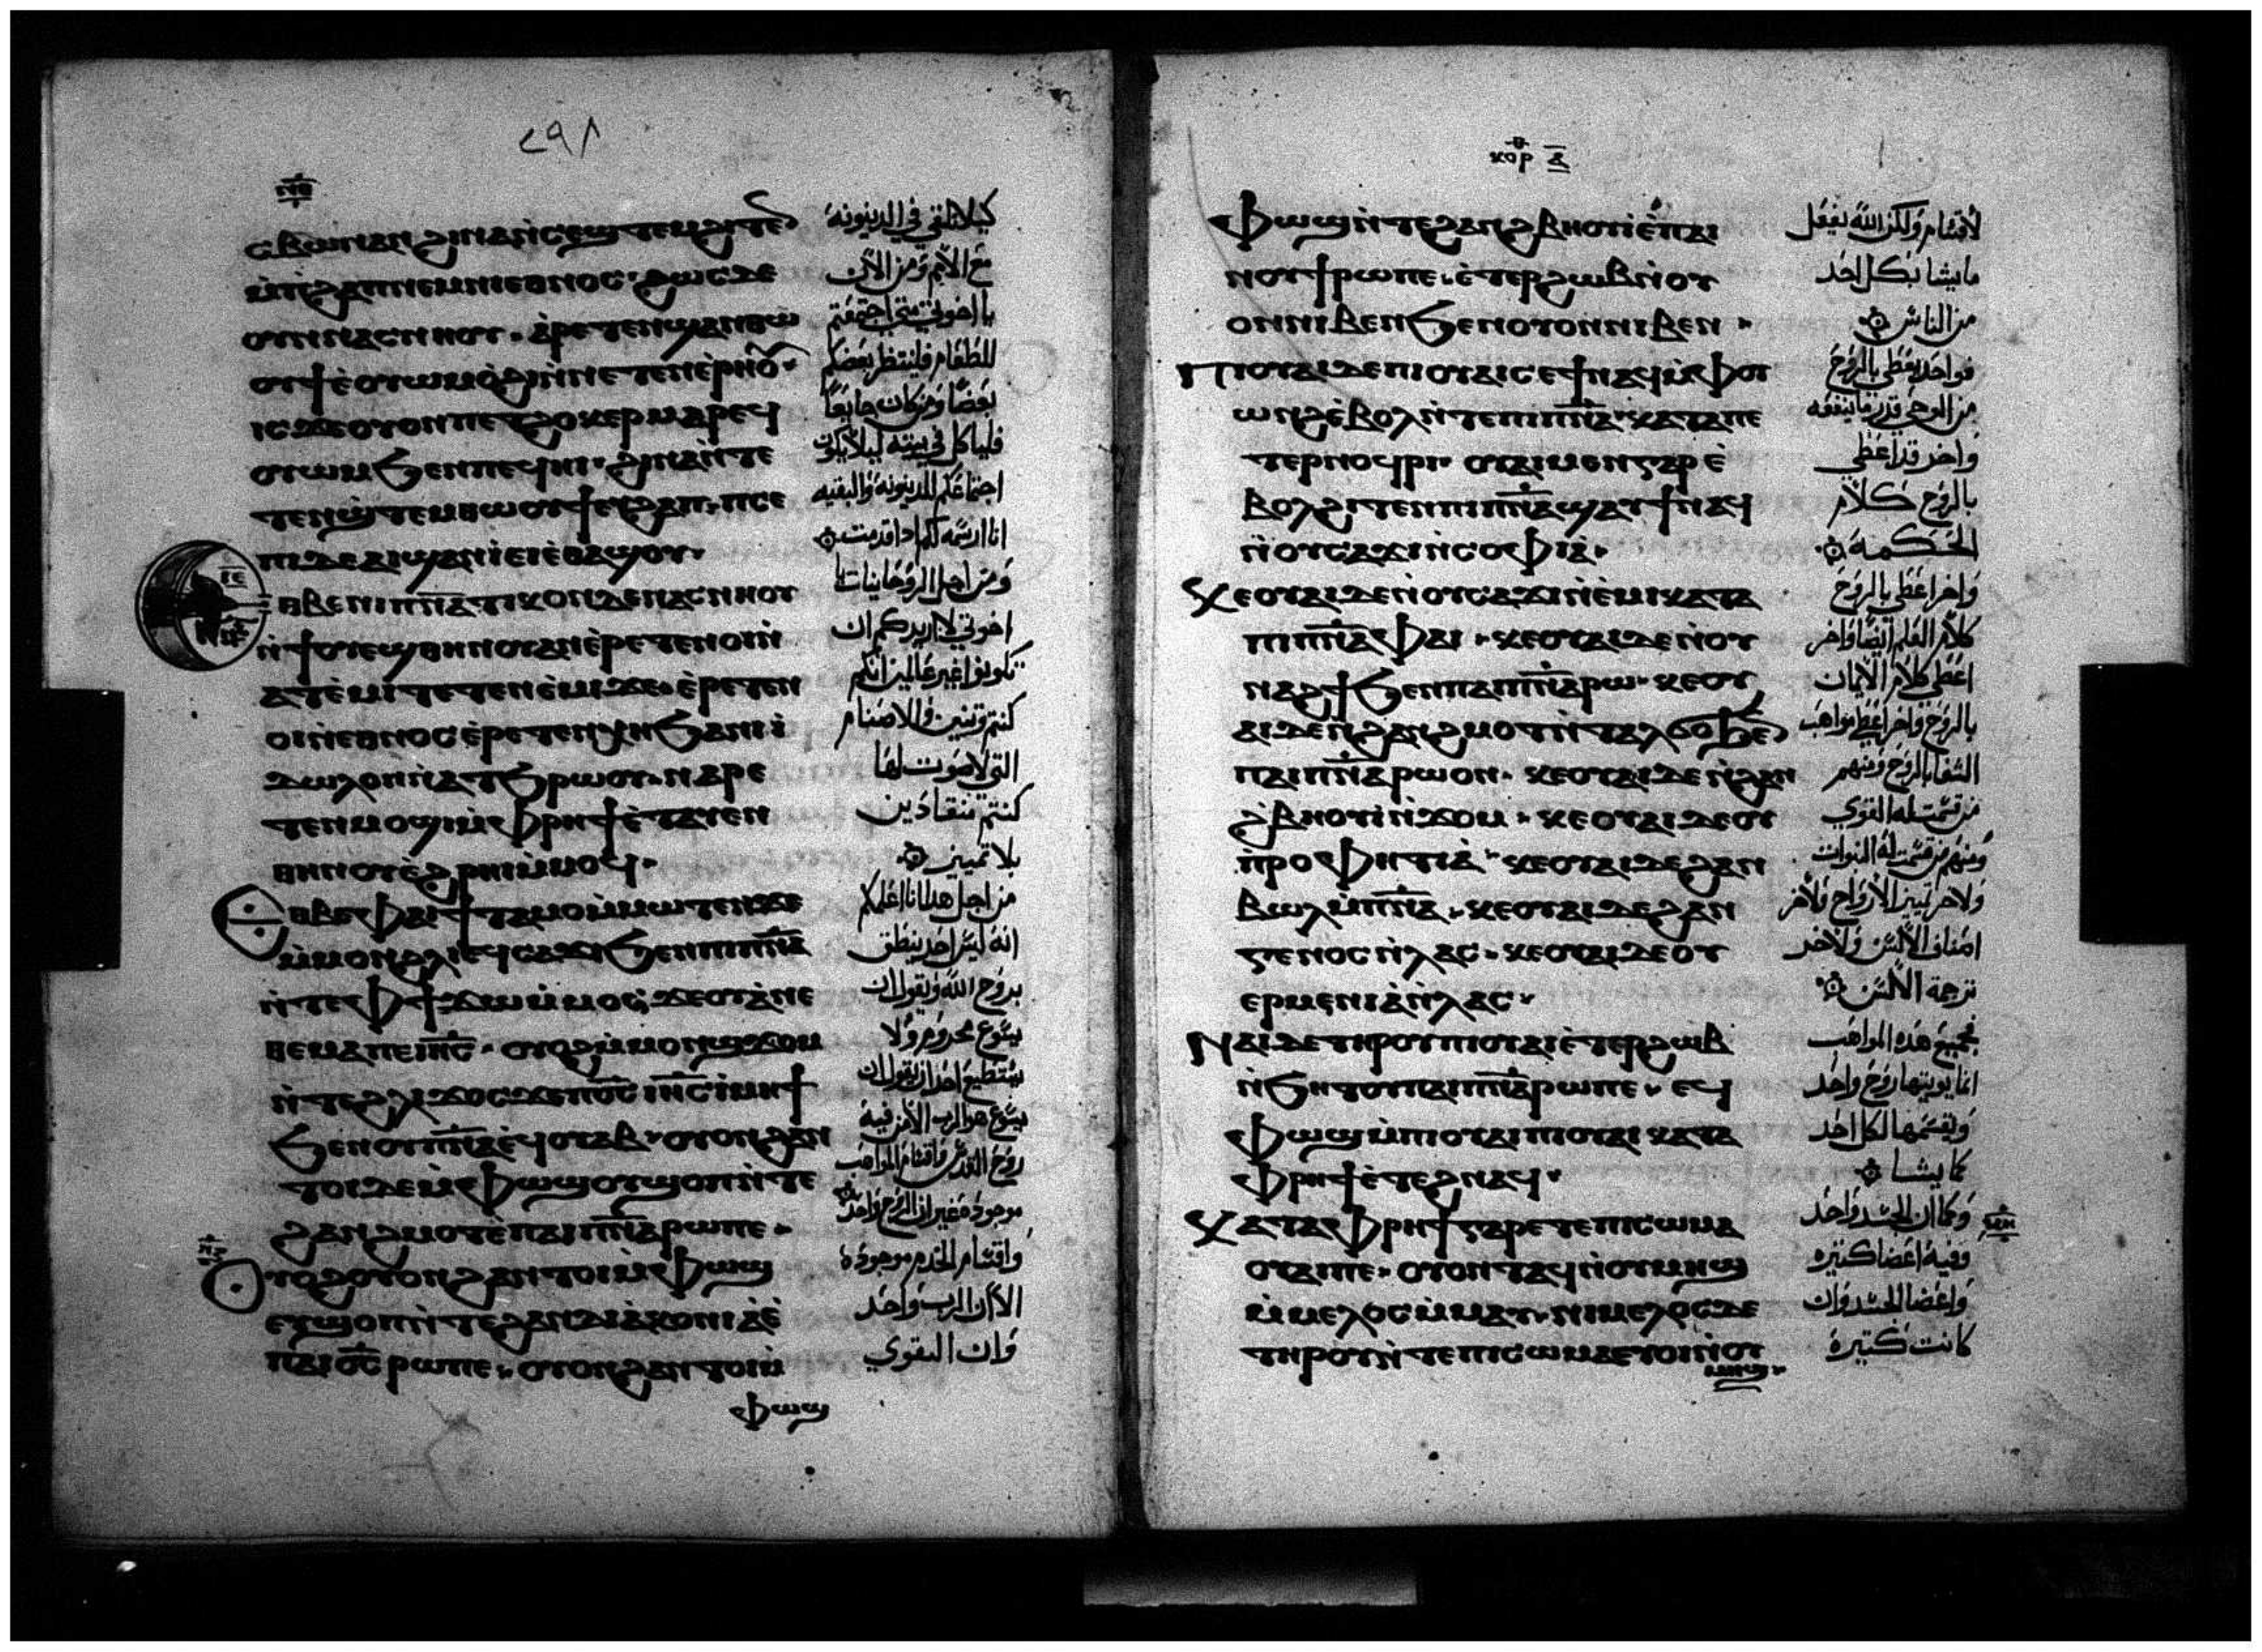 ⲛ̅ⲑ̅
ⲥⲃⲱ ⲛⲁⲛ ϩⲓⲛⲁ ⲛ̀ⲥⲉϣⲧⲉⲙϩⲓⲧⲉⲛ
ⲙ̀ⲡϩⲁⲡ ⲛⲉⲙ ⲛⲓⲉⲑⲛⲟⲥ ϩⲱⲥⲇⲉ
ⲟⲩⲛ ⲛⲁⲥⲛⲏⲟⲩ ⲁⲣⲉⲧⲉⲛϣⲁⲛⲑⲱ
ⲟⲩϯ ⲉ̀ⲟⲩⲱⲙ ⲟ̀ϩⲓ ⲛ̀ⲛⲉⲧⲉⲛⲉⲣⲏⲟⲩ
ⲓⲥϫⲉ ⲟⲩⲟⲛ ⲡⲉⲧϩⲟⲕⲉⲣ ⲙⲁⲣⲉϥ
ⲟⲩⲱⲙ ϧⲉⲛ ⲡⲉϥⲏⲓ ϩⲓⲛⲁ ⲛ̀ⲧⲉ
ⲧⲉⲛϣⲧⲉⲙⲑⲱⲟⲩϯ ⲉⲩϩⲁⲡ ⲡⲥⲉ
ⲡⲓ ⲇⲉ ⲁⲓϣⲁⲛⲓ̀ ⲉⲓⲉ̀ⲑⲁϣⲟⲩ
ⲉⲑⲃⲉ ⲛⲓⲡ̅ⲛ̅ⲁ̅ⲧⲓⲕⲟⲛ ⲇⲉ ⲛⲁⲥⲛⲏⲟⲩ
ⲛ̀ϯⲟⲩⲉϣ ⲑⲏⲛⲟⲩ ⲁⲛ ⲉ̀ⲣⲉⲧⲉⲛⲟⲓ ⲛ̀
ⲁⲧⲉ̀ⲙⲓ ⲧⲉⲧⲉⲛⲉ̀ⲙⲓ ϫⲉ ⲉ̀ⲣⲉⲧⲉⲛ
ⲟⲓ ⲛ̀ⲉⲑⲛⲟⲥ ⲉ̀ⲣⲉⲧⲉⲛⲭⲏ ϧⲁ ⲛⲓⲓ̀
ⲇⲱⲗⲟⲛ ⲛ̀ⲁⲧϧⲣⲱⲟⲩ ⲛⲁⲣⲉ
ⲧⲉⲛⲙⲟϣⲓ ⲙ̀ⲫⲣⲏϯ ⲉ̀ⲧⲁⲩⲉⲛ
ⲑⲏⲛⲟⲩ ⲉ̀ϩⲣⲏⲓ ⲙ̀ⲙⲟϥ
ⲉⲑⲃⲉ ⲫⲁⲓ ϯⲧⲁⲙⲟ ⲙ̀ⲙⲱⲧⲉⲛ ϫⲉ
ⲙ̀ⲙⲟⲛ ϩⲗⲓ ⲉϥⲥⲁϫⲓ ϧⲉⲛ ⲡⲓⲡ̅ⲛ̅ⲁ̅
ⲛ̀ⲧⲉ ⲫϯ ϫⲱ ⲙ̀ⲙⲟⲥ ϫⲉ ⲟⲩⲁⲛⲁ
ⲑⲉⲙⲁ ⲡⲉ ⲓⲏ̅ⲥ̅ ⲟⲩⲟϩ ⲙ̀ⲙⲟⲛ ϣϫⲟⲙ
ⲛ̀ⲧⲉ ϩⲗⲓ ϫⲟⲥ ϫⲉ ⲡⲟ̅ⲥ̅ ⲓⲏ̅ⲥ̅ ⲓ̀ⲙⲏϯ
ϧⲉⲛ ⲟⲩⲡ̅ⲛ̅ⲁ̅ ⲉϥⲟⲩⲁⲃ ⲟⲩⲟⲛ ϩⲁⲛ
ⲧⲟⲓ ⲇⲉ ⲙ̀ⲫⲱϣ ⲟⲩϣⲟⲡ ⲛ̀ⲧⲉ
ϩⲁⲛϩⲙⲟⲧ ⲉ̀ ⲡⲁⲓⲡ̅ⲛ̅ⲁ̅ ⲣⲱ ⲡⲉ
ⲟⲩⲟϩ ⲟⲩⲟⲛ ϩⲁⲛⲧⲟⲓ ⲙ̀ⲫⲱϣ
ⲉⲩϣⲟⲡ ⲛ̀ⲧⲉ ϩⲁⲛⲇⲓⲁⲕⲟⲛⲓⲁ ⲉ̀
ⲡⲁⲓⲟ̅ⲥ̅ ⲣⲱ ⲡⲉ ⲟⲩⲟⲛ ϩⲁⲛⲧⲟⲓ ⲙ̀
ⲫⲱϣ
كيلا نلقى في الدينونه
مع الأمم ومن الان
يا اخوتي متى اجتمعتم
للطعام فلينتظر بعضكم
بعضا ومن كان جايعا
فلياكل في بيته ليلا يكون
اجتماعكم للدينونه والبقيه
انا ارسمه لكم اذا قدمت
ومن اجل الروحانيات يا
اخوتي لا اريدكم ان
تكونوا غير عالمين انكم
كنتم وثنيين والاصنام
التي لا صوت لها
كنتم تنقادين
بلا تمييز
من اجل هذا انا اعلمكم
انه ليس احد ينطق
بروح الله ويقول ان
يسوع محروم ولا
يستطيع احد ان يقول ان
يسوع هو الرب الا من فيه
روح القدس واقسام المواهب
موجوده غير ان الروح واحد
واقسام الخدم موجوده
الا ان الرب واحد
وان القوي
ⲕⲟⲣ ⲁ̅
ⲫⲱϣ ⲛ̀ⲧⲉ ϩⲁⲛϩⲃⲏⲟⲩⲓ̀ ⲉ̀ ⲡⲁⲓ
ⲛⲟⲩϯ ⲣⲱ ⲡⲉ ⲉ̀ⲧⲉⲣϩⲱⲃ ⲛ̀ⲟⲩ
ⲟⲛ ⲛⲓⲃⲉⲛ ϧⲉⲛ ⲟⲩⲟⲛ ⲛⲓⲃⲉⲛ
ⲡⲓⲟⲩⲁⲓ ⲇⲉ ⲡⲓⲟⲩⲁⲓ ⲥⲉϯ ⲛⲁϥ ⲙ̀ⲫⲟⲩ
ⲱⲛϩ ⲉ̀ⲃⲟⲗ ⲛ̀ⲧⲉ ⲡⲓⲡ̅ⲛ̅ⲁ̅ ⲕⲁⲧⲁ ⲡⲉ
ⲧⲉⲣⲛⲟϥⲣⲓ ⲟⲩⲁⲓ ⲙⲉⲛ ⲅⲁⲣ ⲉ̀
ⲃⲟⲗ ϩⲓⲧⲉⲛ ⲡⲓⲡ̅ⲛ̅ⲁ̅ ϣⲁⲩϯ ⲛⲁϥ
ⲛ̀ⲟⲩⲥⲁϫⲓ ⲛ̀ⲥⲟⲫⲓⲁ
ⲕⲉⲟⲩⲁⲓ ⲇⲉ ⲛ̀ⲟⲩⲥⲁϫⲓ ⲛ̀ⲉ̀ⲙⲓ ⲕⲁⲧⲁ
ⲡⲓⲡ̅ⲛ̅ⲁ̅ ⲫⲁⲓ ⲕⲉⲟⲩⲁⲓ ⲇⲉ ⲛ̀ⲟⲩ
ⲛⲁϩϯ ϧⲉⲛ ⲡⲁⲓⲡ̅ⲛ̅ⲁ̅ ⲣⲱ ⲕⲉⲟⲩ
ⲁⲓ ⲇⲉ ⲛ̀ϩⲁⲛϩⲙⲟⲧ ⲛ̀ⲧⲁⲗϭⲟ ϧⲉⲛ
ⲡⲁⲓⲡ̅ⲛ̅ⲁ̅ ⲣⲱ ⲟⲛ ⲕⲉⲟⲩⲁⲓ ⲇⲉ ⲛ̀ϩⲁⲛ
ϩⲃⲏⲟⲩⲓ̀ ⲛ̀ϫⲟⲙ ⲕⲉⲟⲩⲁⲓ ⲇⲉ ⲟⲩ
ⲡⲣⲟⲫⲏⲧⲓⲁ ⲕⲉⲟⲩⲁⲓ ⲇⲉ ϩⲁⲛ
ⲃⲱⲗ ⲙ̀ⲡ̅ⲛ̅ⲁ̅ ⲕⲉⲟⲩⲁⲓ ⲇⲉ ϩⲁⲛ
ⲅⲉⲛⲟⲥ ⲛ̀ⲗⲁⲥ ⲕⲉⲟⲩⲁⲓ ⲇⲉ ⲟⲩ
ⲉⲣⲙⲉⲛⲓⲁ ⲛ̀ⲗⲁⲥ
ⲛⲁⲓ ⲇⲉ ⲧⲏⲣⲟⲩ ⲡⲓⲟⲩⲁⲓ ⲉ̀ⲧⲉⲣϩⲱⲃ
ⲛ̀ϧⲏⲧⲟⲩ ⲡⲁⲓⲡ̅ⲛ̅ⲁ̅ ⲣⲱ ⲡⲉ ⲉϥ
ⲫⲱϣ ⲙ̀ⲡⲓⲟⲩⲁⲓ ⲡⲓⲟⲩⲁⲓ ⲕⲁⲧⲁ
ⲫⲣⲏϯ ⲉ̀ⲧⲉϩⲛⲁϥ
ⲕⲁⲧⲁ ⲫⲣⲏϯ ⲅⲁⲣ ⲉⲧⲉ ⲡⲓⲥⲱⲙⲁ
ⲟⲩⲁⲓ ⲡⲉ ⲟⲩⲟⲛⲧⲁϥ ⲛ̀ⲟⲩⲙⲏϣ
ⲙ̀ⲙⲉⲗⲟⲥ ⲙ̀ⲙⲁⲩ ⲛⲓⲙⲉⲗⲟⲥ ⲇⲉ
ⲧⲏⲣⲟⲩ ⲛ̀ⲧⲉ ⲡⲓⲥⲱⲙⲁ ⲉⲧⲟⲓ ⲛ̀ⲟⲩ
ⲙⲏϣ
لاقسام ولكن الله يفعل
ما يشا بكل احد
من الناس
فواحد يعطي بالروح
من الوحي قدر ما ينفعه
واخر قد اعطي
بالروح كلام
الحكمه
واخر اعطي بالروح
كلام العلم ايضا واخر
اعطي كلام الايمان
بالروح واخر اعطي مواهب
الشفا بالروح ومنهم
من قسمت له القوي
ومنهم من قسمت له النبوات
ولاخر تمييز الارواح ولاخر
اصناف الالسن ولاخر
ترجمة الالسن
فجميع هذه المواهب
انما يوتيها روح واحد
ويقسمها لكل احد
كما يشا
وكما ان الجسد واحد
وفيه اعضا كثيره
واعضا الجسد وان
كانت كثيرة